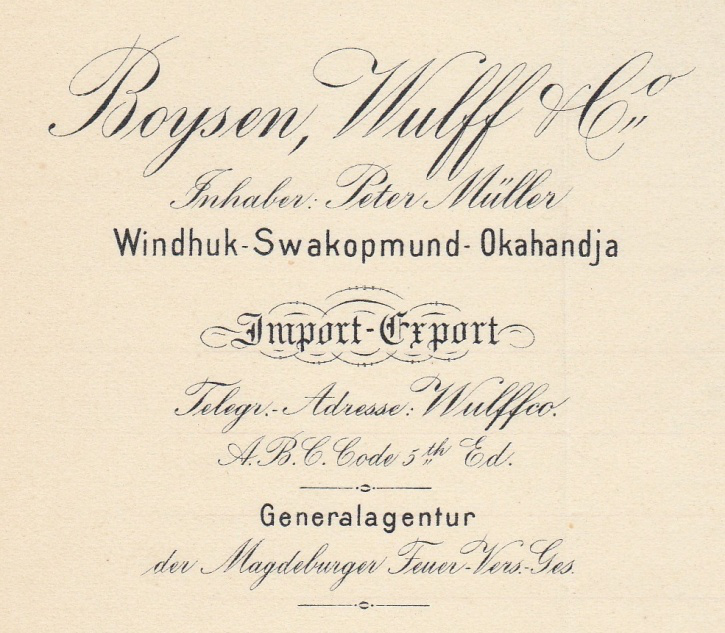 Boysen, Wulff & Co
Inhaber: Peter Müller
Windhuk-Swakopmund-Okahandja
Import-Export
Telegr.-Adresse: Wulffco.
A.B.C. Code 5th Ed.
Generalagentur
der Magdeburger Feuer-Vers.-Ges.